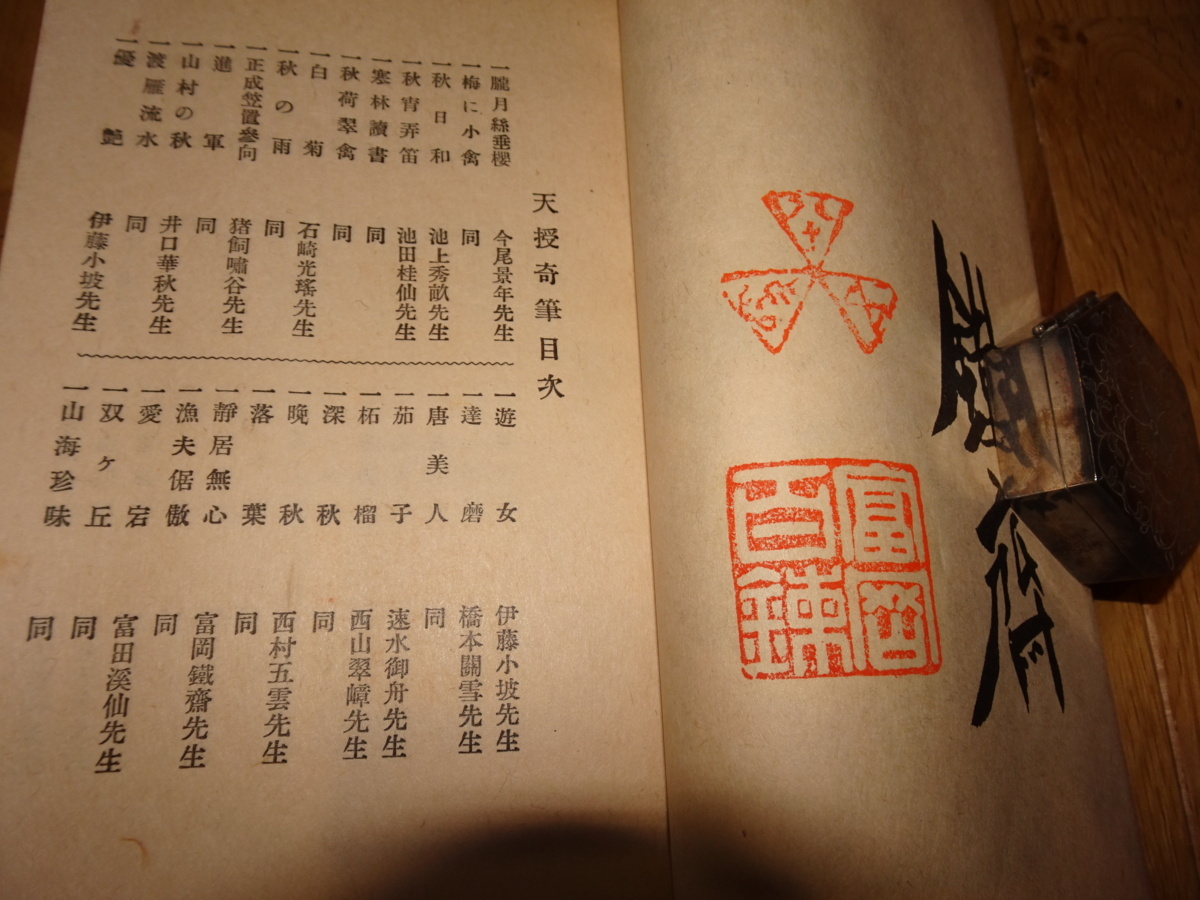 鐵齋
富岡
百錬
天授奇筆目次
一朧月絲垂櫻 今尾景年先生
一梅に小禽 同
一秋日和 池上秀畝先生
一秋宵弄笛 池田桂仙先生
一寒林讀書 同
一秋荷翠禽 同
一白菊 石崎光瑤先生
一秋の雨 同
一正成笠置參向 猪飼嘯谷先生
一進軍 同
一山村の秋 井口華秋先生
一渡雁流水 同
一優艶 伊藤小坡先生
一遊女 伊藤小坡先生
一達磨 橋本關雪先生
一唐美人 同
一茄子 速水御舟先生
一柘榴 西山翠嶂先生
一深秋 同
一晩秋 西村五雲先生
一落葉 同
一靜居無心 富岡鐵齋先生
一漁夫倨傲 同
一愛宕 富田溪仙先生
一双ヶ丘 同
一山海珍味 同